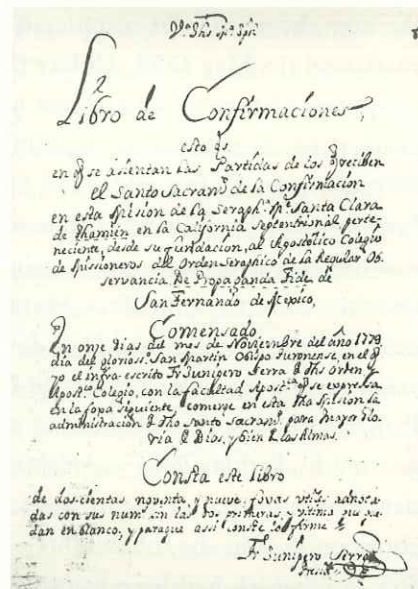 Libro de Confirmaciones,
esto es
en q̃ se asientan las Partidas de los q̃ reciben
el Santo Sacram.to de la Confirmación
en esta Mission de la Seraph.ca M.e Santa Clara
de Thamien en la California Septentrional perte-
neciente, desde su fundacion, al Apostólico Colegio
de Missioneros del Orden Seraphico de la Regular Ob-
servancia De Propaganda Fide de
San Fernando de Mexico,
Comensado,
En onze Dias del mes de Noviembre del año 1779
dia del glorioso San Martin Obispo Turonense, en el q̃
yo el infra-escrito Fr Junipero Serra d̃ dho Orden y
Apost.co Colegio, con la facultad Apost.ca q̃ se expressa
en la foxa siguiente, comenze en esta dha Mission la
administración d̃ dho santo Sacram.to para mayor Glo-
ria d̃ Dios, y bien d̃ las Almas.
Consta este libro
de doscientas noventa y nueve foxas utiles adnota-
das con sus num.s sin las primeras, y ultima que que-
dan en blanco, y paraque assi conste lo firmé
Fr. Junipero Serra
Presid.te